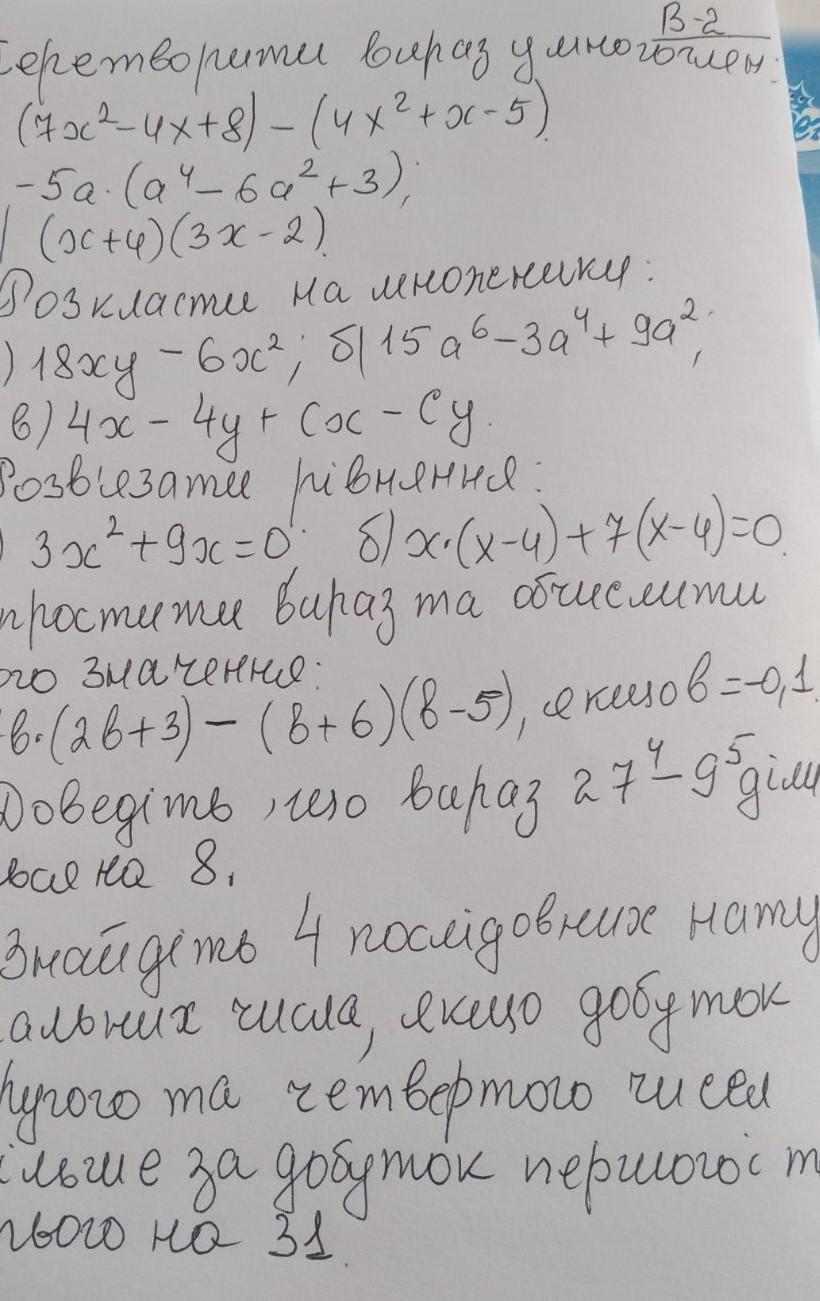 В-2
Перетворити вираз у многочлен:
(7x² - 4x + 8) - (4x² + x - 5)
-5a · (a⁴ - 6a² + 3);
(x + 4)(3x - 2)
Розкласти на множники:
) 18xy - 6x²; б) 15a⁶ - 3a⁴ + 9a²;
в) 4x - 4y + cx - cy.
Розв'язати рівняння:
) 3x² + 9x = 0; б) x·(x-4) + 7(x-4) = 0.
простити вираз та обчислити
ого значення:
в·(2в+3) - (в+6)(в-5), якщо в = -0,1.
Доведіть, що вираз 27⁴ - 9⁵ діли
ься на 8.
Знайдіть 4 послідовних нату
альних числа, якщо добуток
ругого та четвертого чисел
ільше за добуток першого і т
нього на 31.